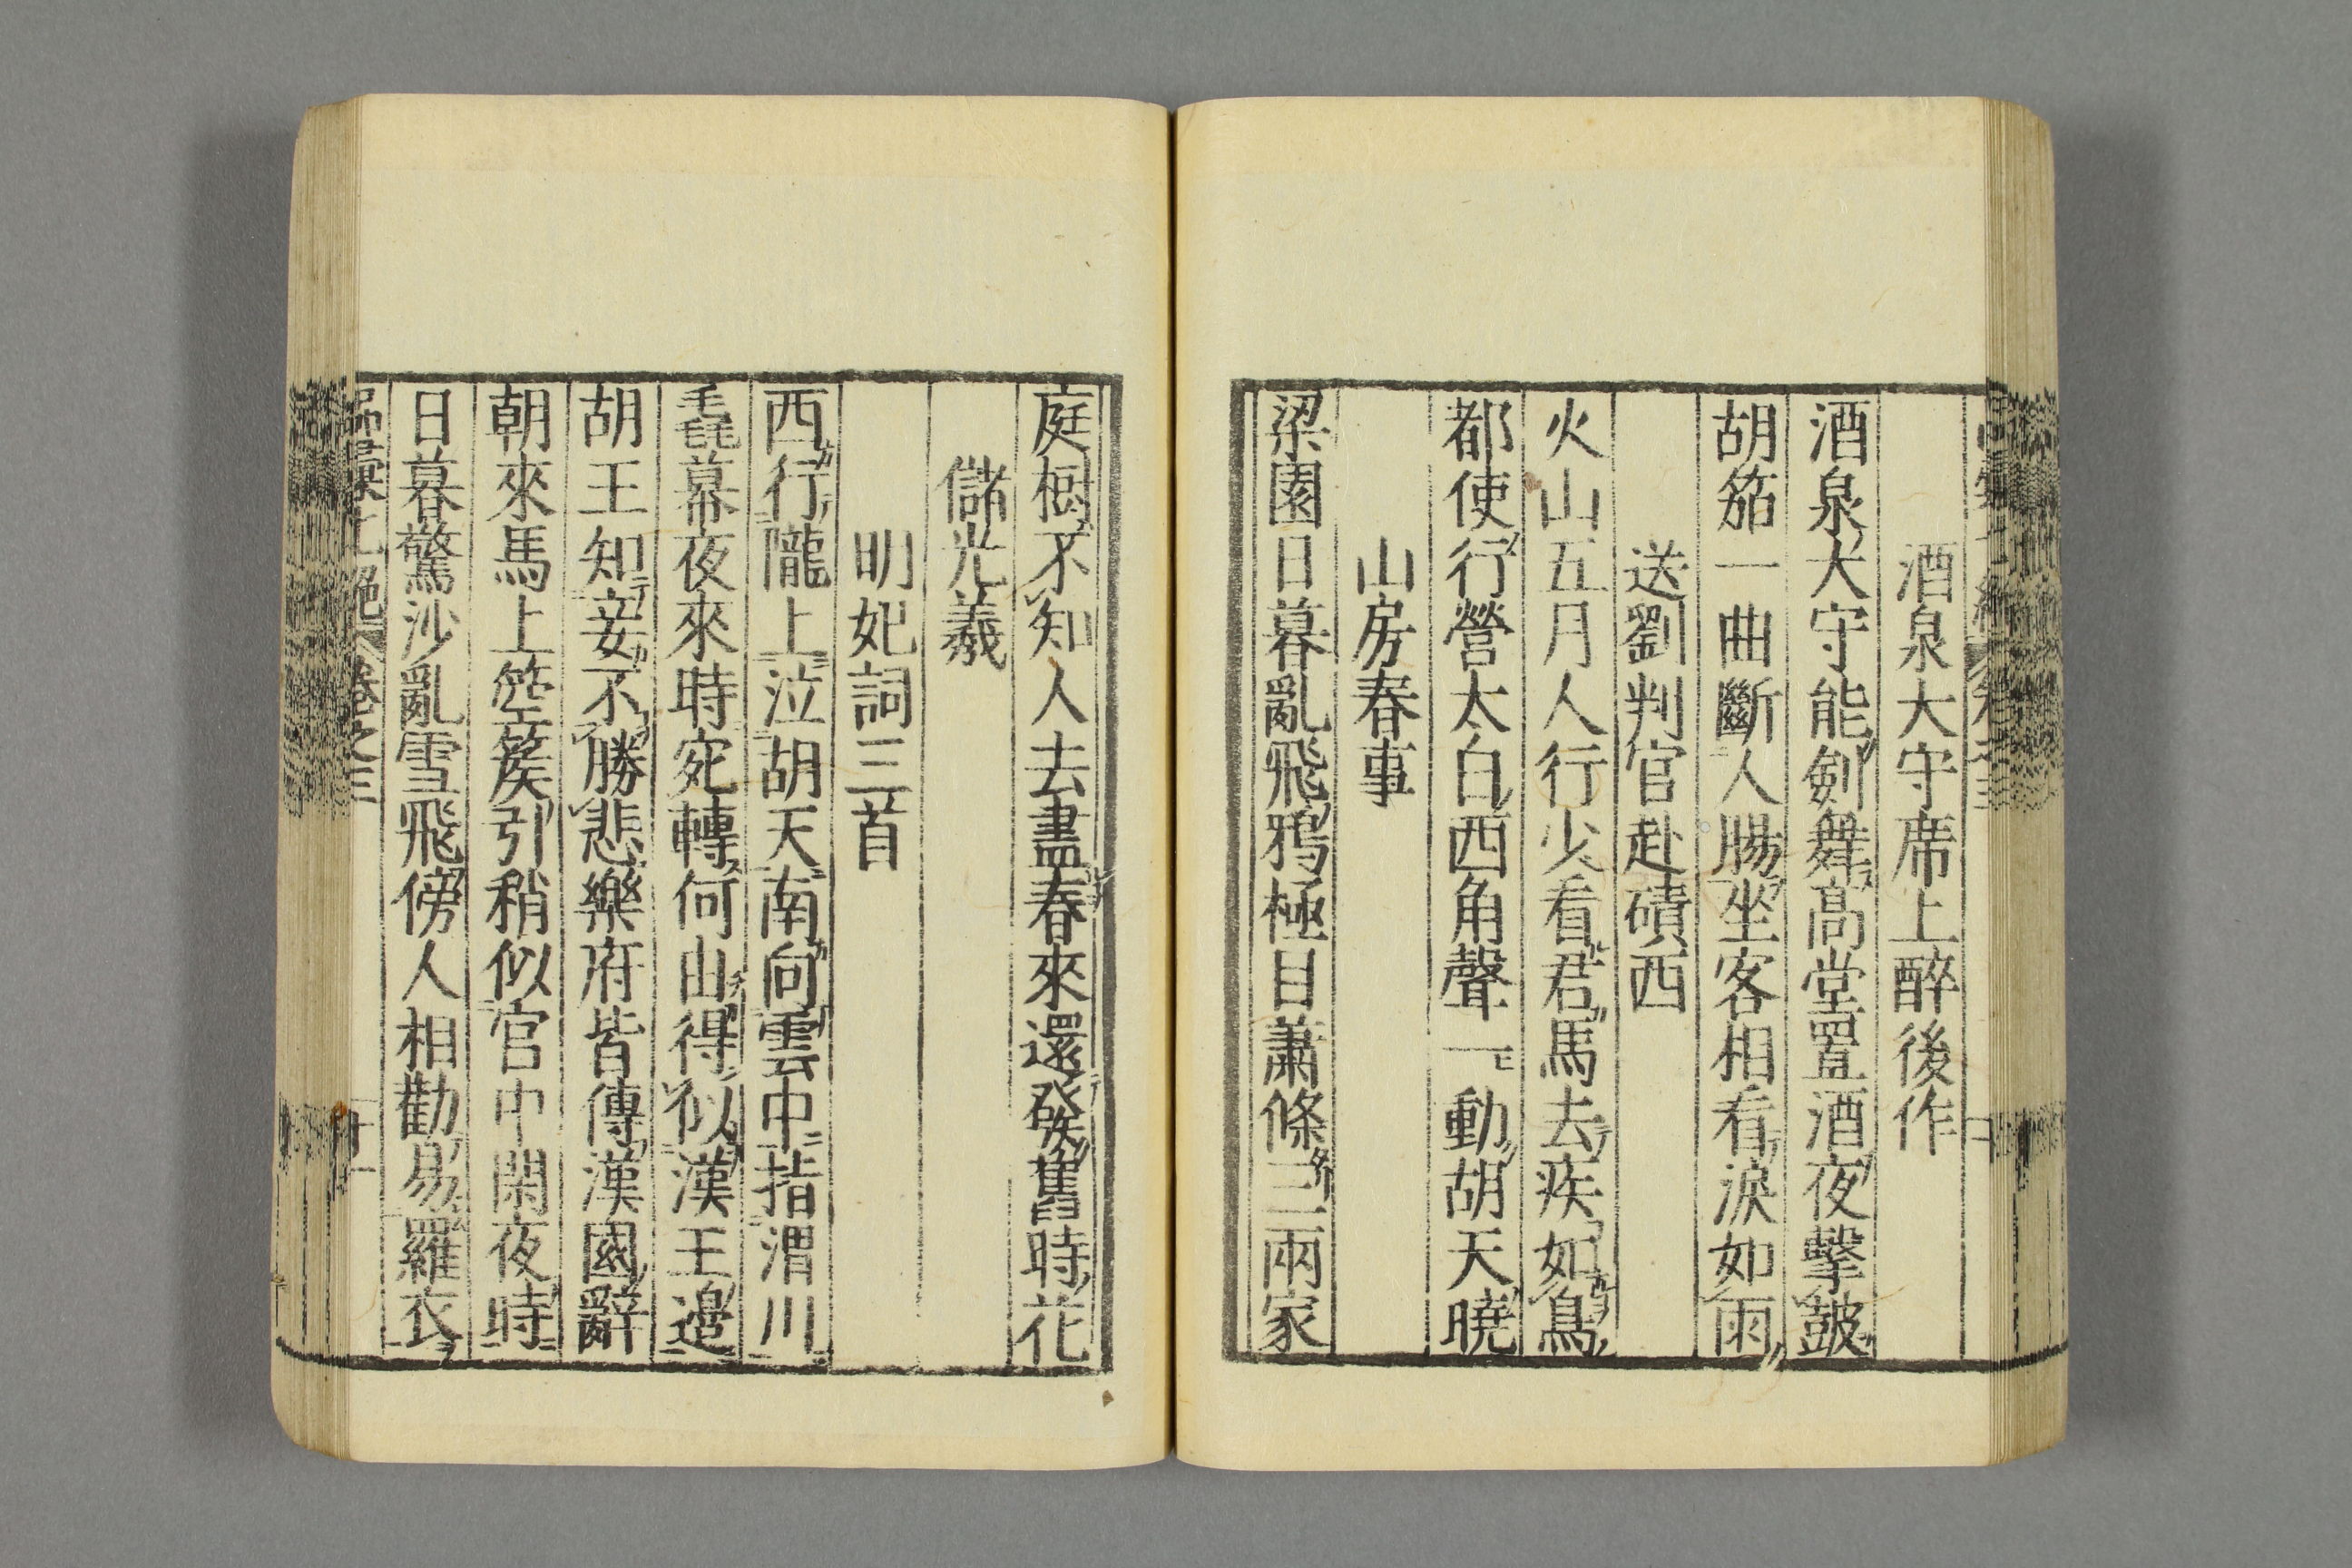 酒泉大守席上醉後作
酒泉大守能劍舞高堂置酒夜擊皷
胡笳一曲斷人腸坐客相看淚如雨
送劉判官赴磧西
火山五月人行少看君馬去疾如鳥
都使行營太白西角聲一動胡天曉
山房春事
梁園日暮亂飛鴉極目蕭條三兩家
庭樹不知人去盡春來還發舊時花
儲光羲
明妃詞三首
西行隴上泣胡天南向雲中指渭川
毳幕夜來時宛轉何由得似漢王邉
胡王知妾不勝悲樂府皆傳漢國辭
朝來馬上箜篌引稍似宮中閑夜時
日暮驚沙亂雪飛傍人相勸易羅衣
絶 卷之三